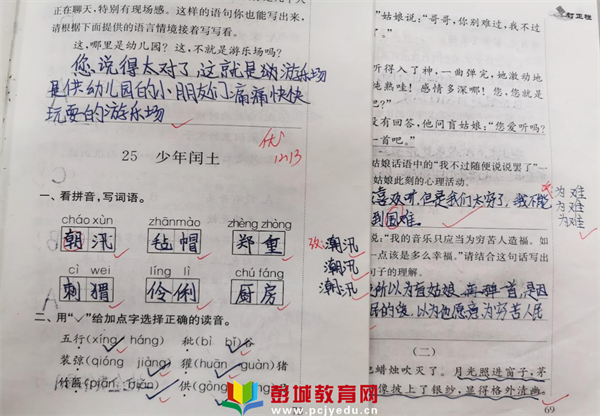 正在聊天，特别有现场感。这样的语句你也能写出来，
请根据下面提供的语言情境接着写写看。
这，哪里是幼儿园？这，不就是游乐场吗？
您说得太对了，这就是
游乐场
是供幼儿园的小朋友们痛痛快快
玩耍的游乐场
优
12.13
25 少年闰土
一、看拼音，写词语。
cháo xùn zhānmào zhèng zhòng
朝汛 毡帽 郑重
改 潮汛
潮汛
潮汛
cì wei líng lì chú fáng
刺猬 伶俐 厨房
二、用“✓”给加点字选择正确的读音。
五行(xíng háng) 秕(bì bǐ)
装弶(qióng jiàng) 獾(huān guàn)猪
竹匾(piān biǎn) 供(gòng
姑娘说：“哥哥，你别难过，我不过
听得入了神，一曲弹完，她激动地
纯熟哇！感情多深哪！您，您就是
吧？”
没有回答，他问盲姑娘：“您爱听吗？
一首吧。”
姑娘话语中的“我不过随便说说罢了”一
姑娘此刻的心理活动。
喜欢听，但是我们太穷了，我不能
到困难。
为难
为难
为难
说：“我的音乐只应当为穷苦人造福。如
一点该是多么幸福。”请结合这句话写出
句子的理解。
所以为盲姑娘
弹一首，是因
以为他愿意为穷苦人民
（二）
把蜡烛吹灭了。月光照进窗子，茅
像披上了银纱，显得格外清幽。
69
订正栏
彭城教育网
www.pcjyedu.cn